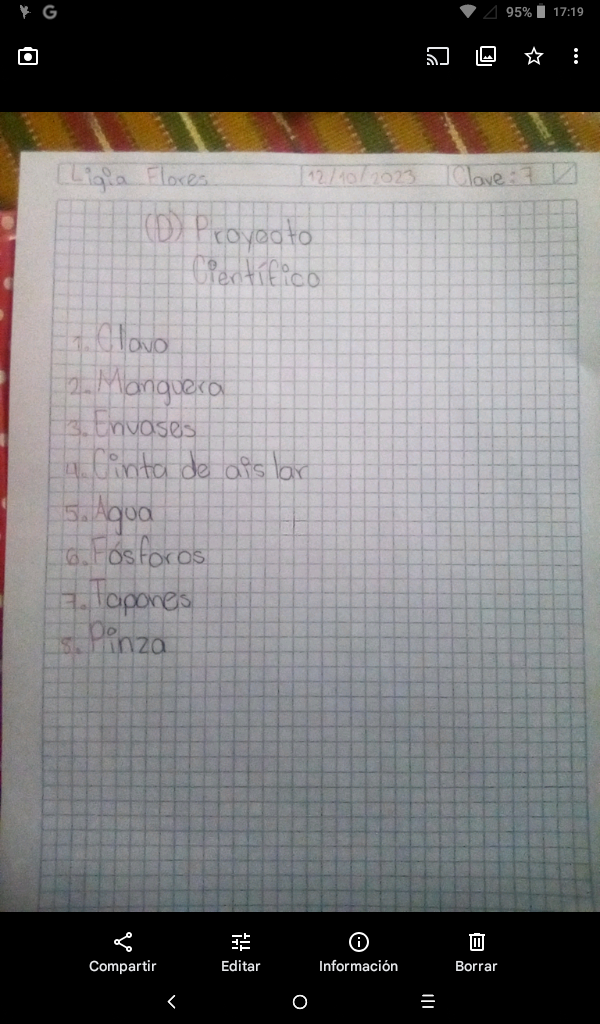 G 95% 17:19
Ligia Flores 12/10/2023 Clave: 7
(D) Proyecto
Científico
1. Clavo
2. Manguera
3. Envases
4. Cinta de aislar
5. Agua
6. Fósforos
7. Tapones
8. Pinza
Compartir Editar Información Borrar